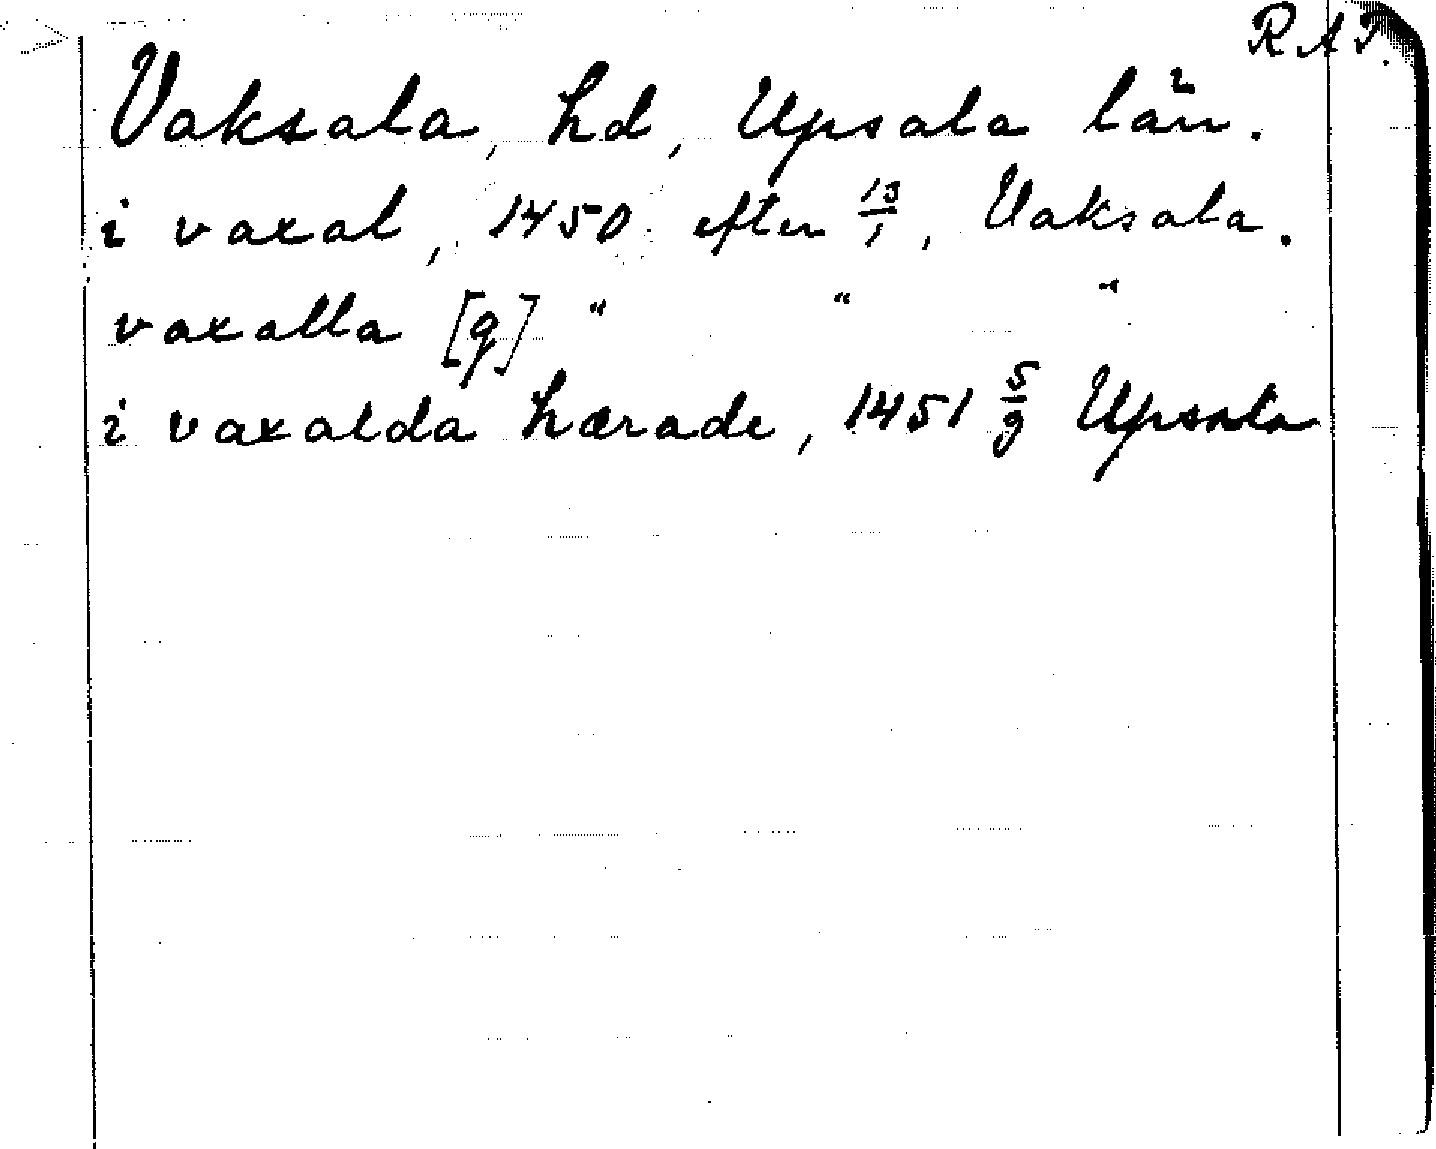 R A P.
Vaksala, hd, Upsala län.
i vaxal, 1450 efter 13/1, Vaksala.
vaxalla [g] " " "
i vaxalda hærade, 1451 5/9 Upsala